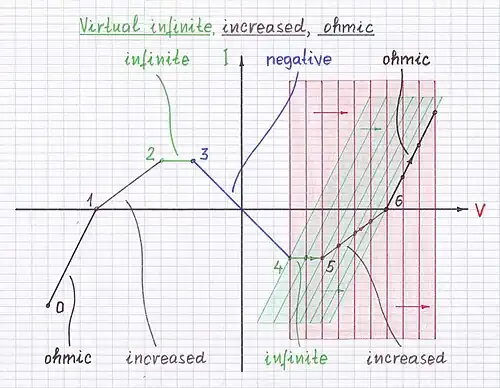 Virtual infinite, increased, ohmic
infinite I negative ohmic
2 3
1 6 V
4 5
0
ohmic increased infinite increased